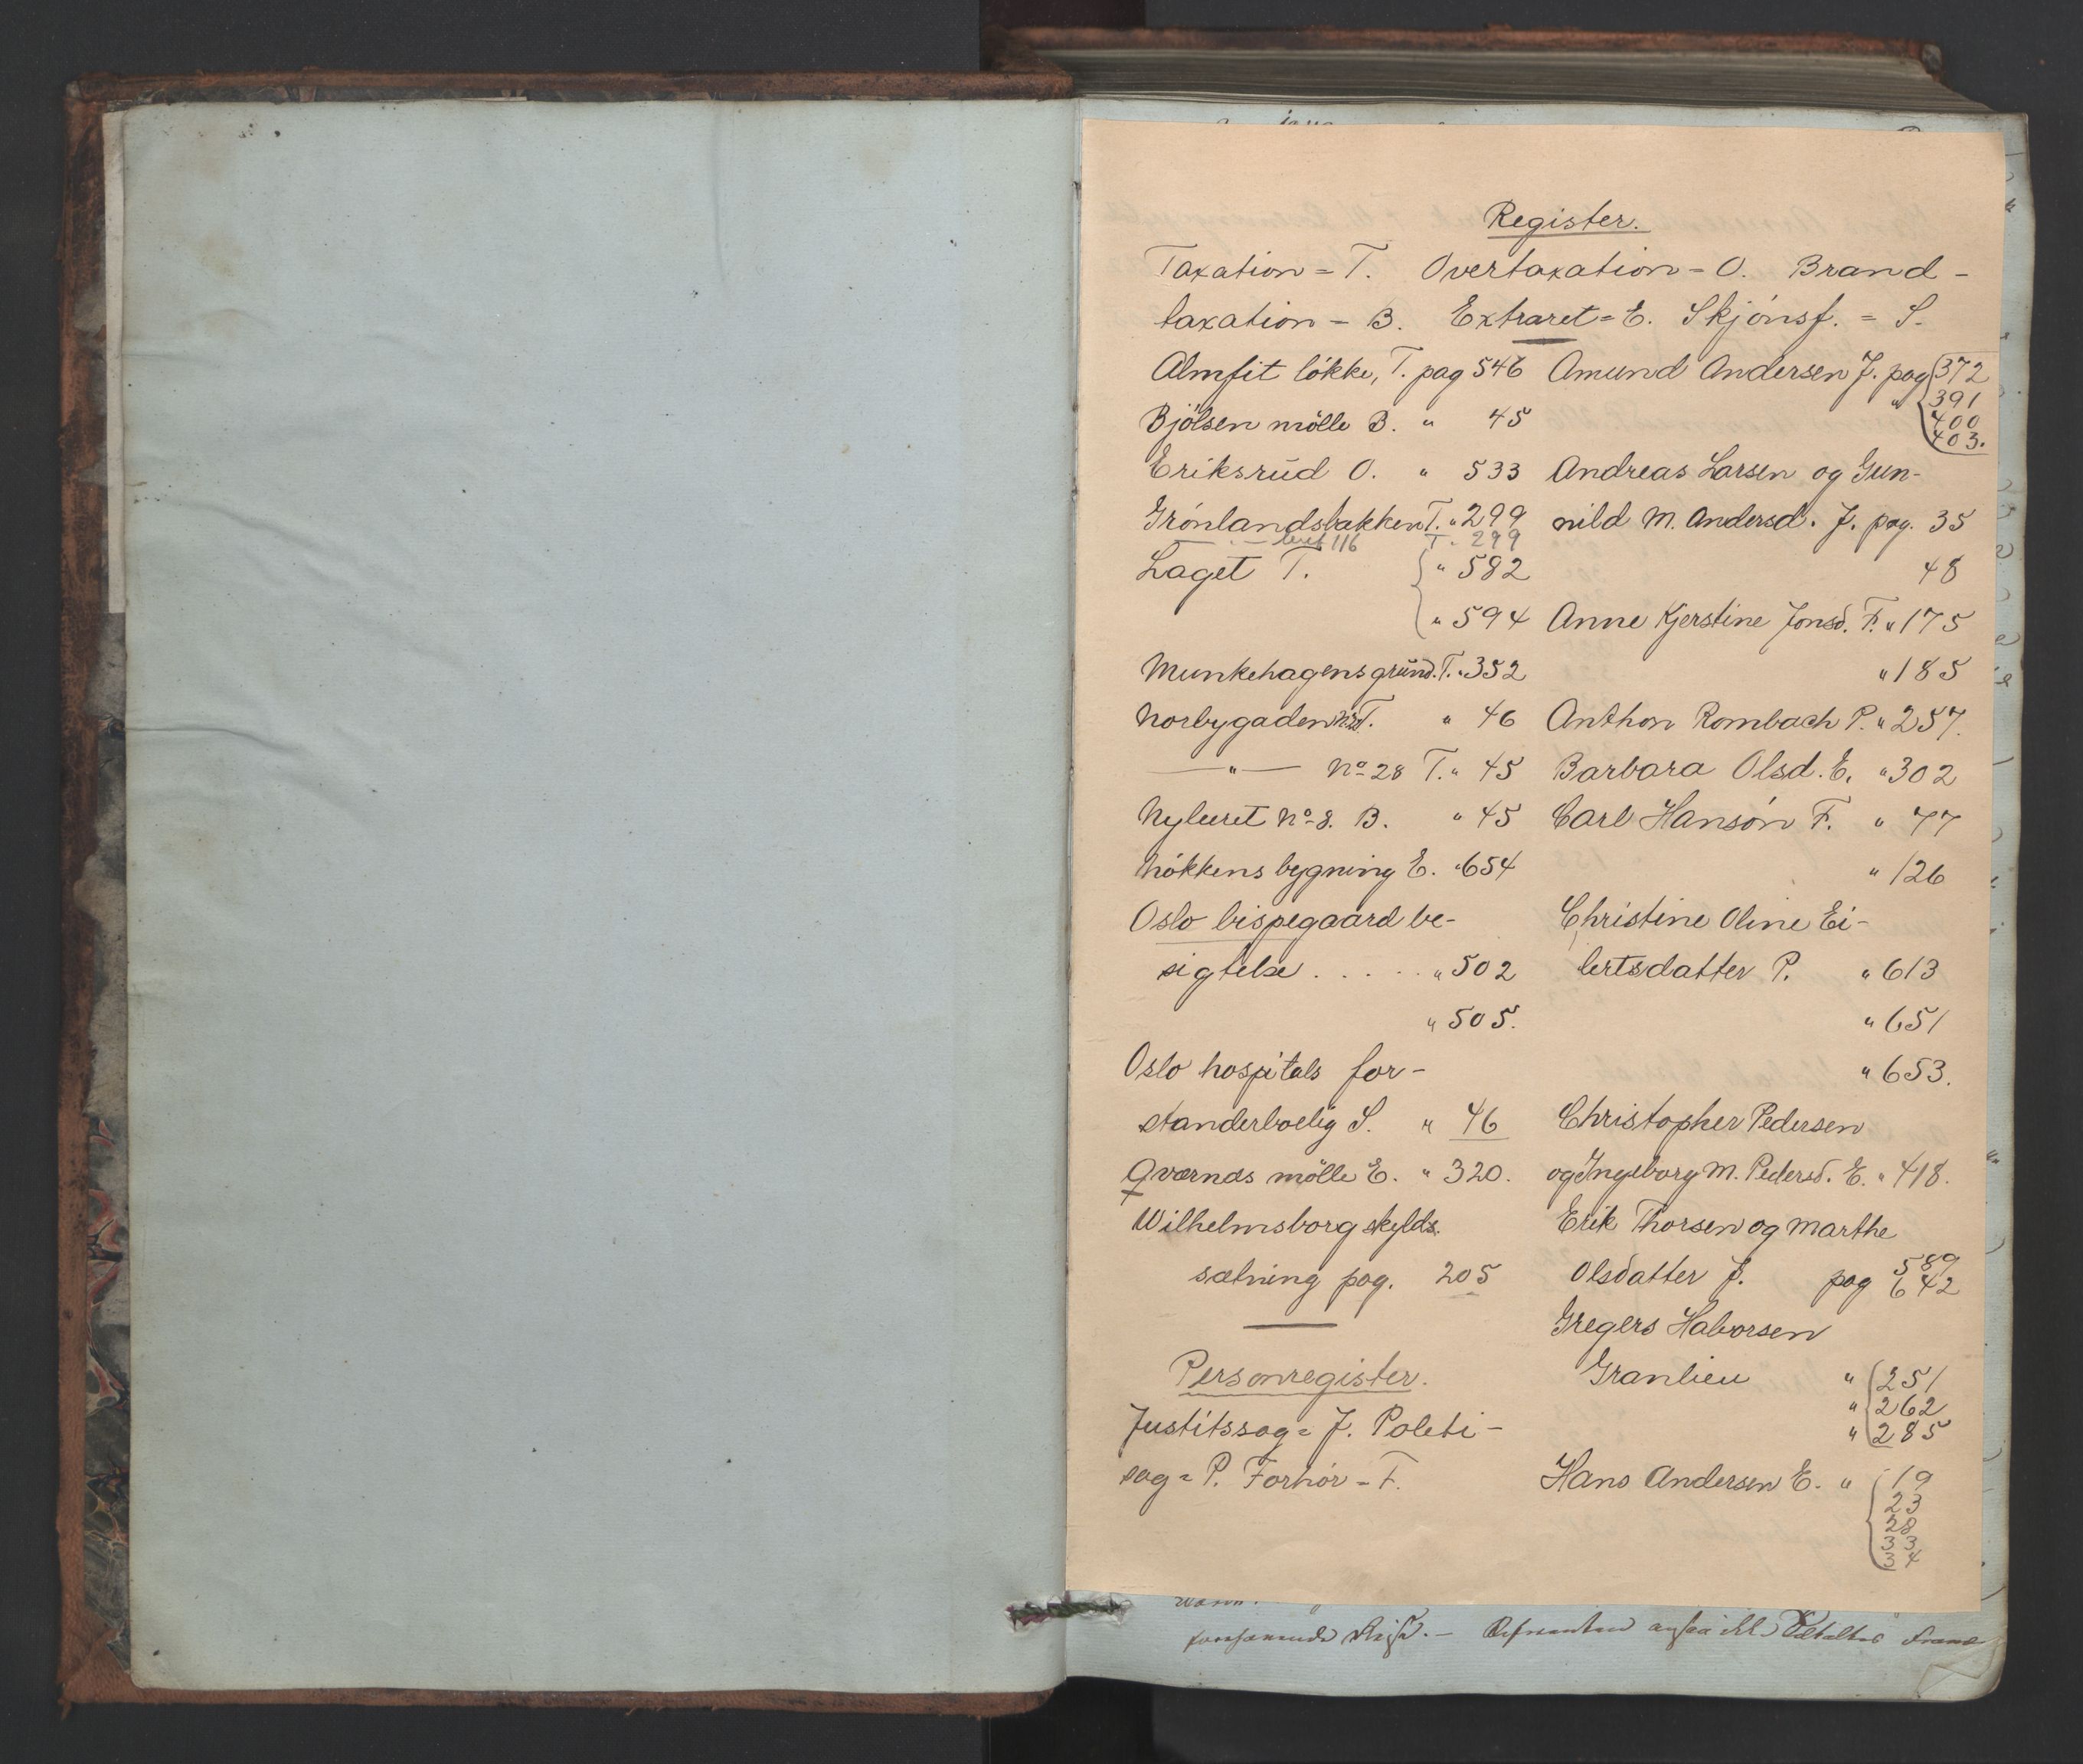 Register.
Taxation = T. Overtaxation = O. Brand-
taxation = B. Extraret = E. Skjönsf. = S.
Almfit lökke, T. pag 546
Bjölsen mölle B. " 45
Eriksrud O. " 533
Grönlandsbakken T. " 299
116 T. 299
Laget T. " 582
" 594
Munkehagens grund. T. " 352
Norbygaden T. " 46
— " — No 28 T. " 45
Nyleiret No 8. B. " 45
Nökkens bygning E. " 654
Oslo bispegaard be-
sigtelse . . . . . " 502
" 505.
Oslo hospitals for-
standerbolig S. " 46
Qværnas mölle E. " 320.
Wilhelmsborg skylds.
sætning pag. 205
Personregister.
Justitssag = J. Politi-
sag = P. Forhör = F.
Amund Andersen J. pag 372
" 391
400
403.
Andreas Larsen og Gun-
nild M. Andersd. J. pag. 35
48
Anne Kjerstine Jonsd. F. " 175
" 185
Anthon Rombach P. " 257.
Barbara Olsd. E. " 302
Carl Hansön F. " 77
" 126
Christine Oline Ei-
lertsdatter P. " 613
" 651
" 653.
Christopher Pedersen
og Ingeborg M. Pedersd. E. " 418.
Erik Thorsen og Marthe
589
Olsdatter J. pag 642
Gregers Halvorsen
Granlien " 251
" 262
" 285
Hans Andersen E. " 19
23
28
33
34